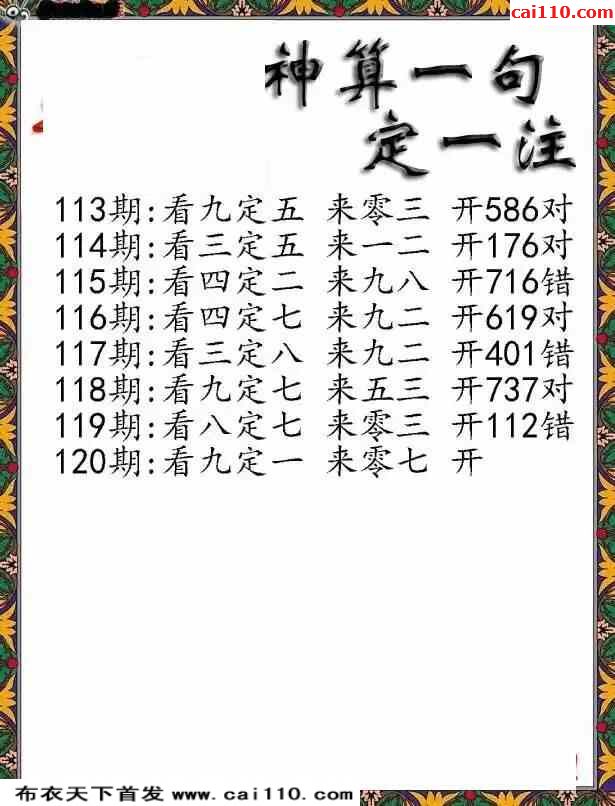 cai110.com
神算一句
定一注
113期:看九定五 来零三 开586对
114期:看三定五 来一二 开176对
115期:看四定二 来九八 开716错
116期:看四定七 来九二 开619对
117期:看三定八 来九二 开401错
118期:看九定七 来五三 开737对
119期:看八定七 来零三 开112错
120期:看九定一 来零七 开
布衣天下首发 www.cai110.com